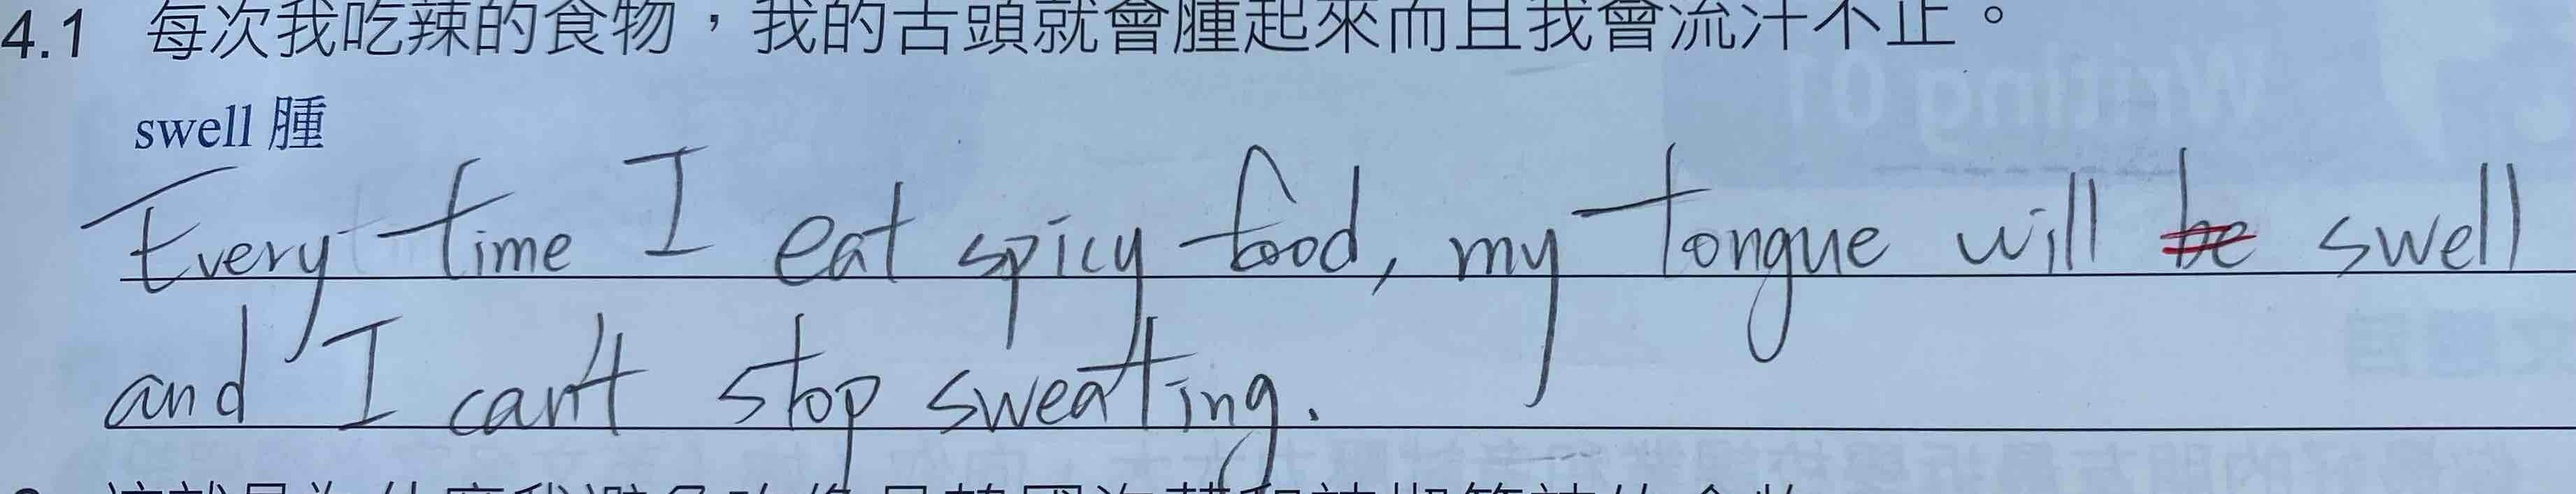 4.1 每次我吃辣的食物，我的舌頭就會腫起來而且我會流汗不止。
swell 腫
Every time I eat spicy food, my tongue will be swell
and I can't stop sweating.